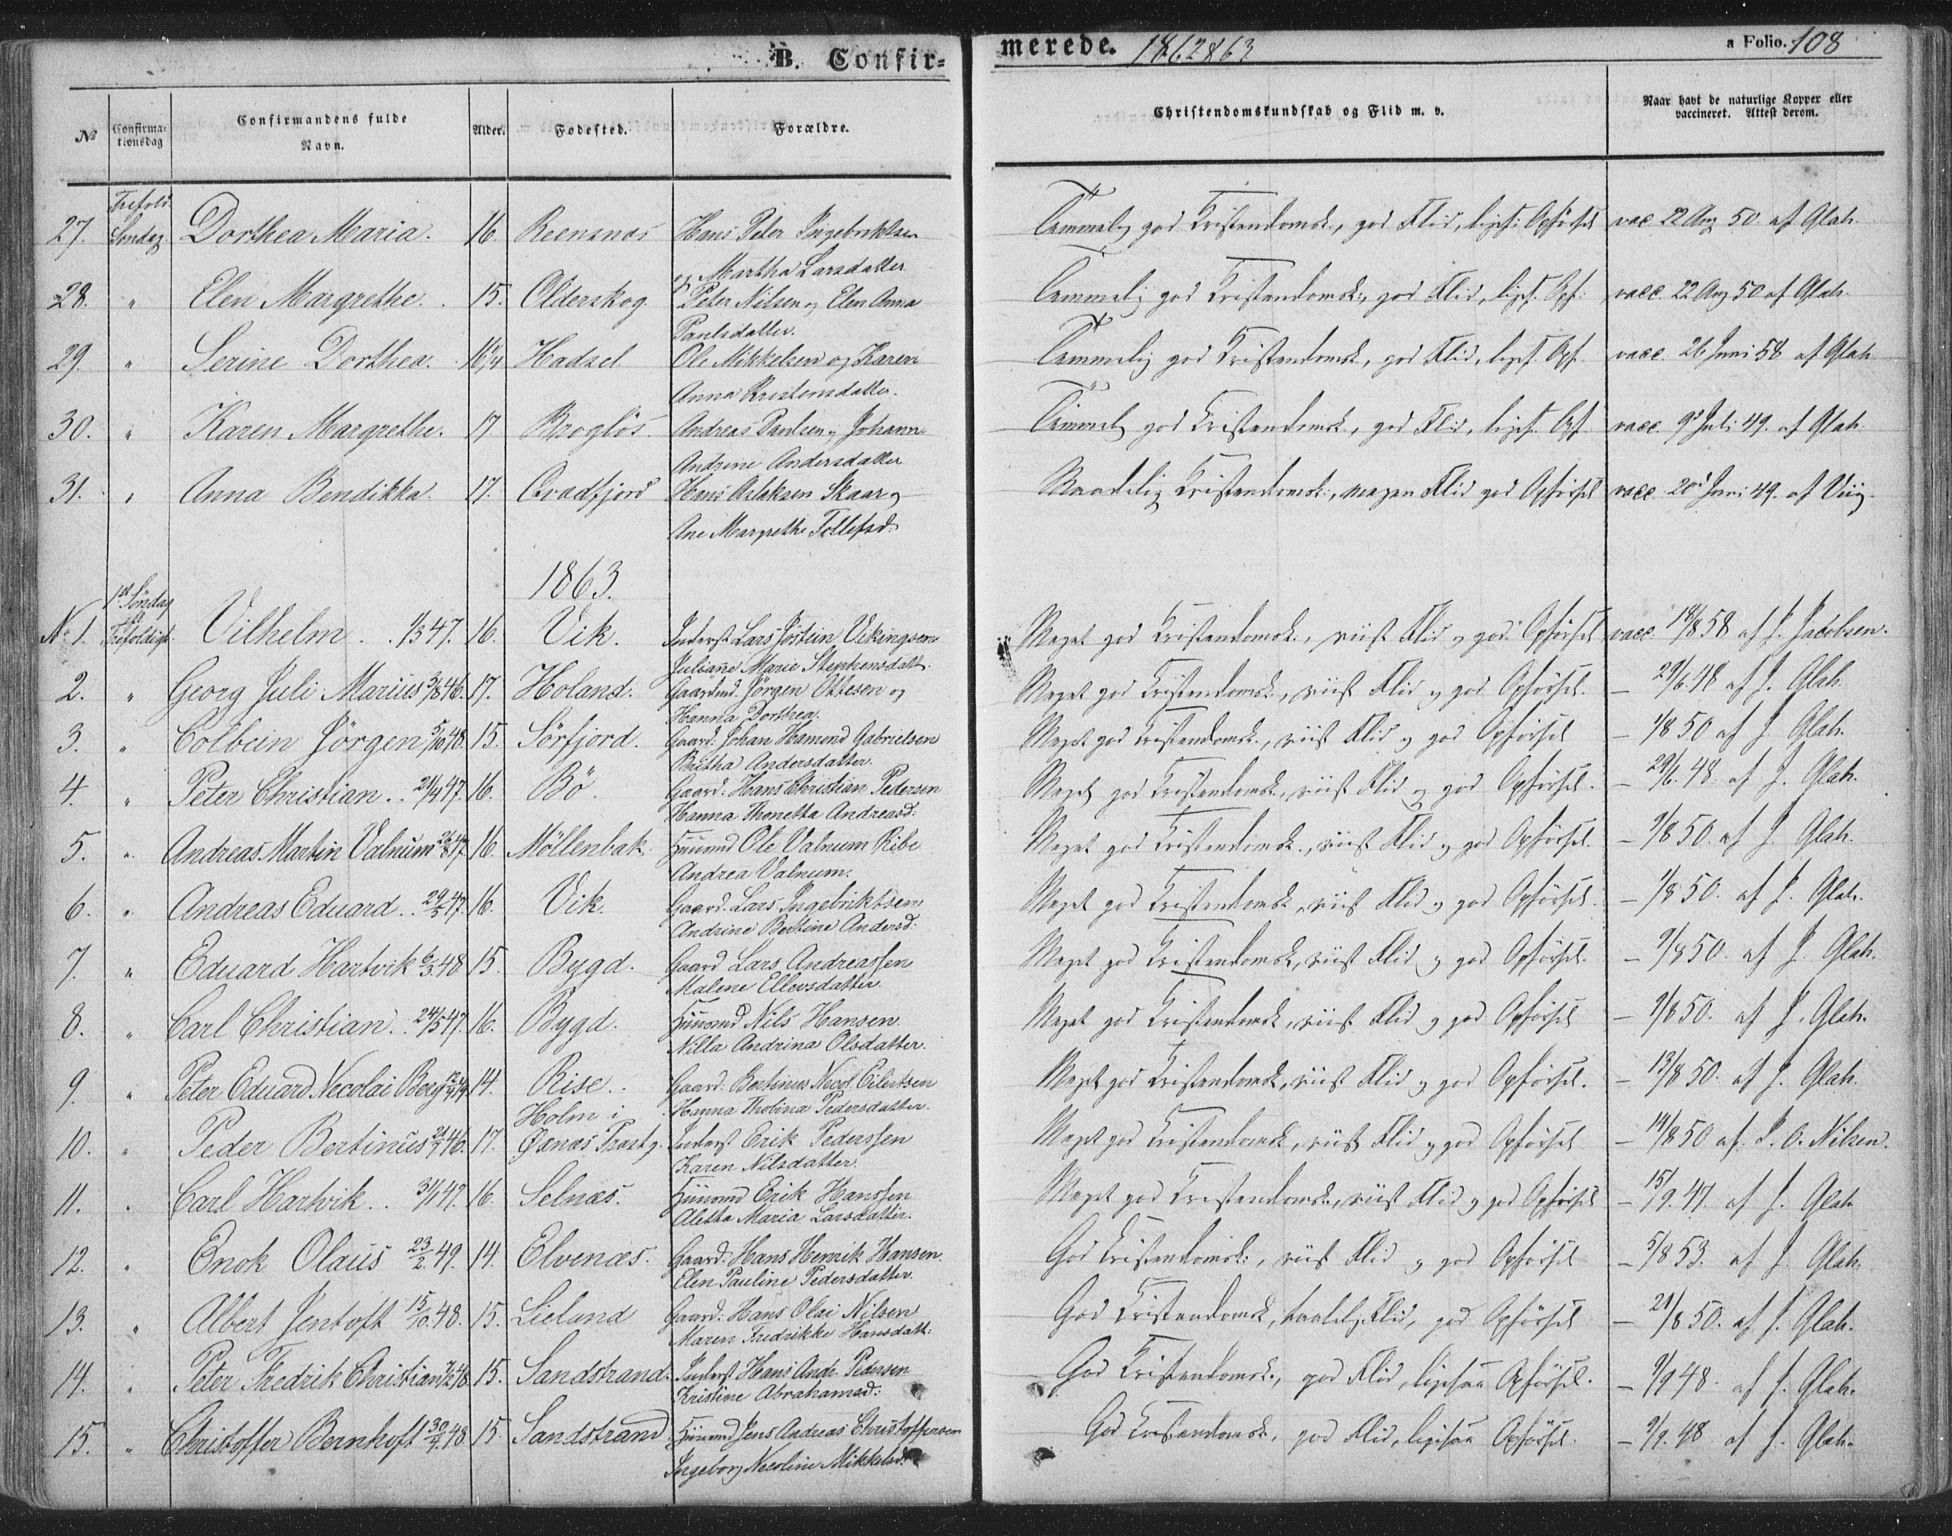 B. Confir=
merede. 1862 & 63
a Folio. 108
No
Confirma-
tionsdag
Confirmandens fulde
Navn.
Alder.
Fødested.
Forældre.
Christendomskundskab og Flid m. v.
Naar havt de naturlige Kopper eller
vaccineret. Attest derom.
Trefold.
27. Søndag Dorthea Maria. 16. Reensnæs Hans Peter Ingebriktsen Temmelig god Kristendomsk., god Flid, liges. Opførsel vac. 22 Aug 50. af Glah.
og Martha Larsdatter
28. " Elen Margrethe. 15. Olderskog Peter Nilsen og Elen Anna Temmelig god Kristendomsk., god Flid, ligs. Opf. vacc. 22 Aug 50 af Glah.
Paulsdatter.
29. " Serine Dorthea. 16¼ Hadsel Ole Mikkelsen og Karen Temmelig god Kristendomsk., god Flid, ligs. Opf. vacc. 26 Juni 58 af Glah
Anna Kristensdatter.
30. " Karen Margrethe. 17 Brogløs Andreas Paulsen og Johann Temmel. god Kristendomsk., god Flid, ligs. Opf. vacc. 9d Juli 49. af Glah.
Andrine Andersdatter
31. " Anna Bendikka. 17. Qvædfjord Hans Aslaksen Skaar og Maadelig Kristendomsk., megen Flid god Opførsel vacc. 20d Juni 49. af Viig.
Ane Margrethe Tollefsd.
1863.
1ste Søndag
No 1. Trefoldigh. Vilhelm. 1/3 47. 16. Vik. Inderst Lars Jørstein Vikingsen Meget god Kristendomsk., viist Flid og god Opførsel vacc. 18/8 58 af J. Jacobsen.
Juliane Marie Stephensdatt.
2. " Georg Juli Marius 3/8 46. 17. Holand. Gaardmd. Jørgen Ottesen og Meget god Kristendomsk., viist Flid og god Opførsel. — 29/6 48 af J. Glah.
Hanna Dorthea.
3. " Colbein Jörgen 5/10 48. 15. Sörfjord. Gaard: Johan Hamond Gabrielsen Meget god Kristendomsk., viist Flid og god Opførsel — 1/8 50 af J. Glah.
Britha Andersdatter.
4. " Peter Christian.. 21/4 47. 16. Bö. Gaard. Hans Christian Pedersen Meget god Kristendomsk., viist Flid og god Opførsel. — 29/6 48. af J. Glah.
Hanna Thonetta Andreasd:
5. " Andreas Martin Valnum 26/8 47. 16. Möllenbak. Huusmd Ole Valnum Ribe Meget god Kristendomsk., viist Flid og god Opførsel. — 1/8 50. af J. Glah.
Andrea Valnum.
6. " Andreas Eduard.. 29/5 47. 16. Vik. Gaard. Lars Ingebriktsen Meget god Kristendomsk., viist Flid og god Opførsel. — 1/8 50. af J. Glah.
Andrine Bertine Andersd:
7. " Eduard Hartvik 6/3 48 15. Bygd. Gaard Lars Andreassen Meget god Kristendomsk, viist Flid og god Opførsel. — 1/8 50. af J. Glah.
Malene Ellevsdatter.
8. " Carl Christian.. 24/5 47. 16. Bygd. Huusmd Nils Hansen Meget god Kristendomsk., viist Flid og god Opførsel — 1/8 50. af J. Glah.
Nilla Andrina Olsdatter.
9. " Peter Eduard Necolai Berg 14. Rise. Gaard: Bertinus Necol. Eilertsen Meget god Kristendomsk., viist Flid og god Opførsel. — 13/8 50. af J. Glah.
Hanna Thobina Pedersdatter.
Holm i
10. " Peder Bertinus 46. 17. Øxnæs Præstg. Inderst Erik Pederssen Meget god Kristendomsk., viist Flid og god Opførsel — 14/8 50 af. P. O. Nilsen.
Karen Nilsdatter
11. " Carl Hartvik.. 31/1 47. 16. Selnæs. Huusmd Erik Hanssen Meget god Kristendomsk., viist Flid og god Opførsel — 15/9. 47. af J. Glah
Aletha Maria Larsdatter.
12. " Enok Olaüs 23/2 49. 14. Elvenæs. Gaard: Hans Henrik Hansen. God Kristendomsk., viist Flid og god Opførsel — 5/8 53. af J. Glah.
Elen Pauline Pedersdatter
13. " Albert Jentoft 15/10. 48. 15. Lieland Gaard: Hans Olai Nilsen God Kristendomsk., taalelig Flid, god Opførsel — 21/8 50. af J. Glah.
Maren Fredrikke Hansdatt:
14. " Peter Fredrik Christian 48 15. Sandstrand. Inderst Hans Andr. Pedersen God Kristendomsk., god Flid, ligesaa Opførsel. — 9/9 48. af J. Glah.
Kristine Abrahamsd:
15. " Christoffer Bernhoft 30/7 48 15. Sandstrand Huusmd Jens Andreas Christoffersen God Kristendomsk., god Flid, ligesaa Opførsel. — 9/9. 48 af J. Glah.
Ingeborg Necoline Mikkelsd: